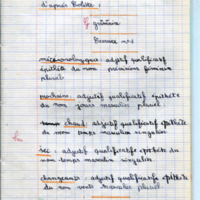 d'après Bolitte :
grammaire
Exercice n°1
météorologiques : adjectif qualificatif
épithète du nom prévisions féminin
pluriel
prochains : adjectif qualificatif épithète
du nom jours masculin pluriel
chaud : adjectif qualificatif épithète
du nom temps masculin singulier
sec : adjectif qualificatif épithète du
nom temps masculin singulier
changeants : adjectif qualificatif épithète
du nom vents masculin pluriel